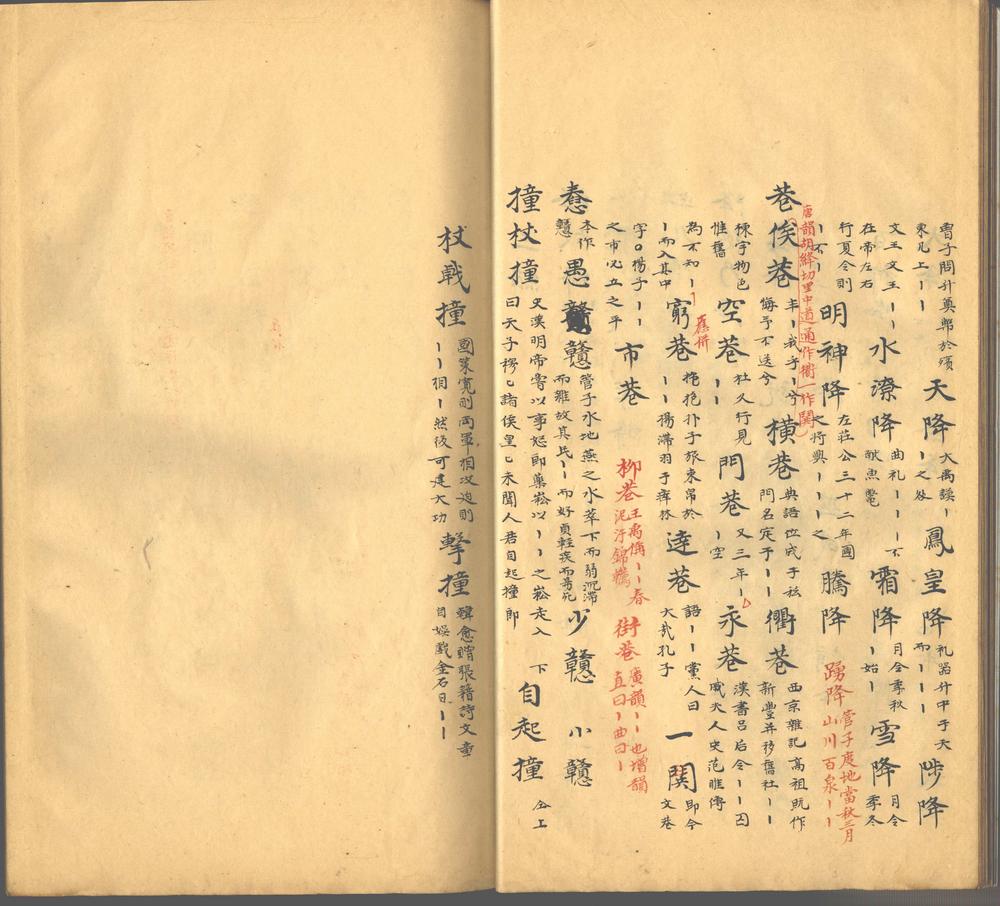 曾子問升奠幣於殯
東几上丨丨
天降 大禹謨丨
丨之咎
鳳皇降 礼器升中于天
而丨丨丨
陟降
文王文王丨丨
在帝左右
水潦降 曲礼丨丨丨不
献魚鼈
霜降 月令季秋
丨始丨
雪降 月令
季冬
行夏令則
丨不丨
明神降 左莊公三十二年國
之將興丨丨丨之
騰降
踴降 管子度地當秋三月
山川百泉丨丨
巷
唐韻胡絳切里中道通作衖一作閧
俟巷 丰丨我乎丨兮
悔予不送兮
橫巷
門名定于丨丨
衖巷 西京雜記高祖既作
新豐并移舊社丨丨
棟宇物色
惟舊
空巷 杜久行見
丨丨
門巷 又三年丨
丨空
永巷 漢書呂后令丨丨囚
戚夫人史范雎傳
為不知丨丨
丨而入其中
舊併
窮巷
丨丨揚滯羽于瘁林
達巷 語丨丨黨人曰
大哉孔子
一閧 即今
文巷
字〇楊子丨丨
之市必立之平
市巷
柳巷 王禹偁丨丨春
泥汙錦韉
街巷 廣韻丨丨也增韻
直曰丨曲曰丨
惷 本作
戇
愚戇 管子水地燕之水萃下而弱沉滯
而雜故其民丨丨而好貞輕疾而易死
少戇 小戇
撞 杖撞 史漢明帝嘗以事怒郎藥崧以丨丨之崧走入
下
曰天子穆乚諸侯皇乚未聞人君自起撞郎
自起撞 仝上
杖戟撞 國策寬則兩軍相攻迫則
丨丨相丨然後可建大功
擊撞 韓愈贈張籍詩文章
自娛戲金石日丨丨